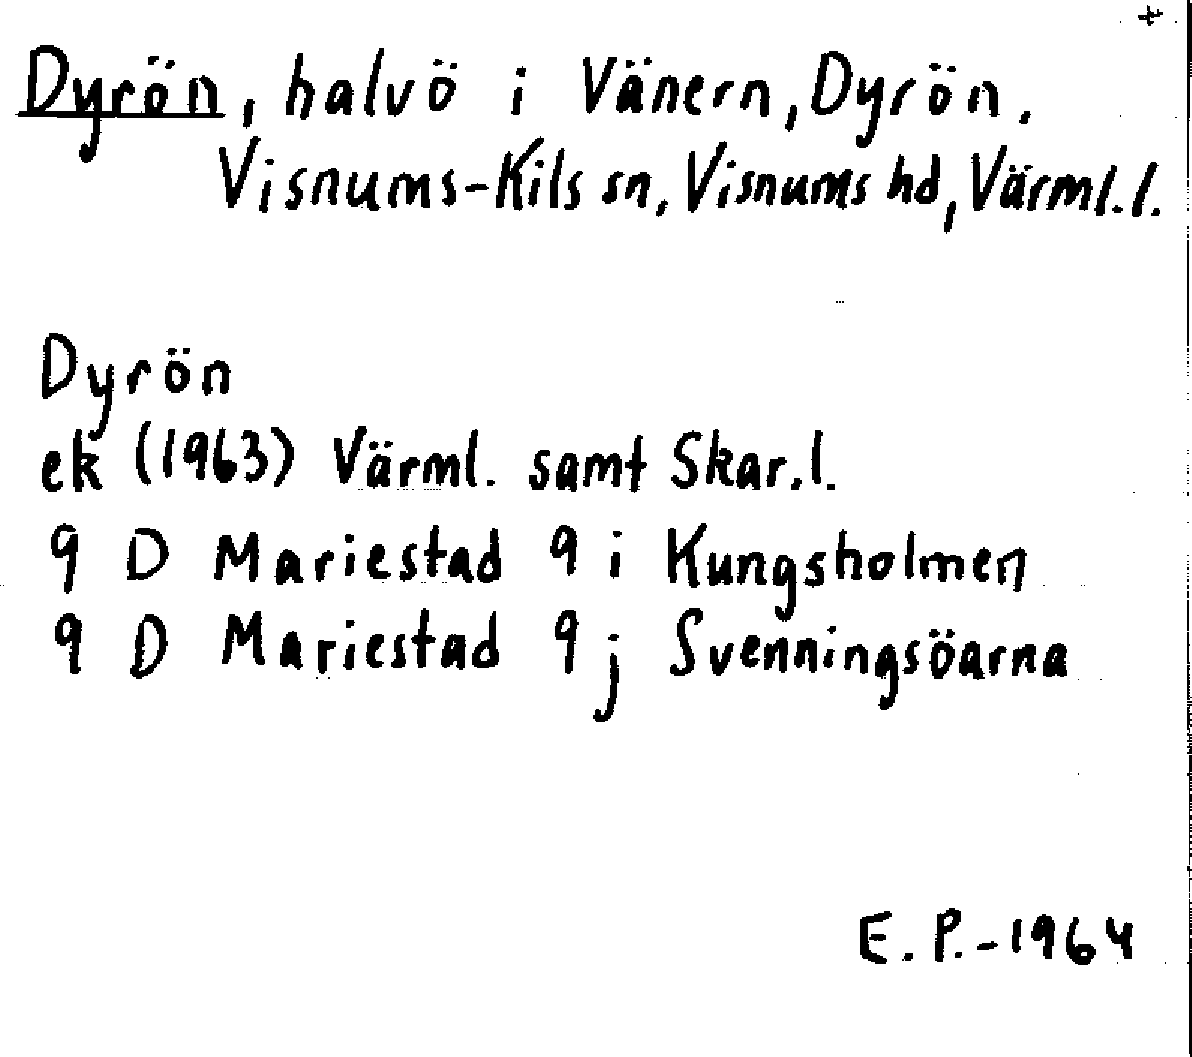 +
Dyrön, halvö i Vänern, Dyrön.
Visnums-Kils sn, Visnums hd, Värml.l.
Dyrön
ek (1963) Värml. samt Skar.l.
9 D Mariestad 9 i Kungsholmen
9 D Mariestad 9 j Svenningsöarna
E.P.-1964